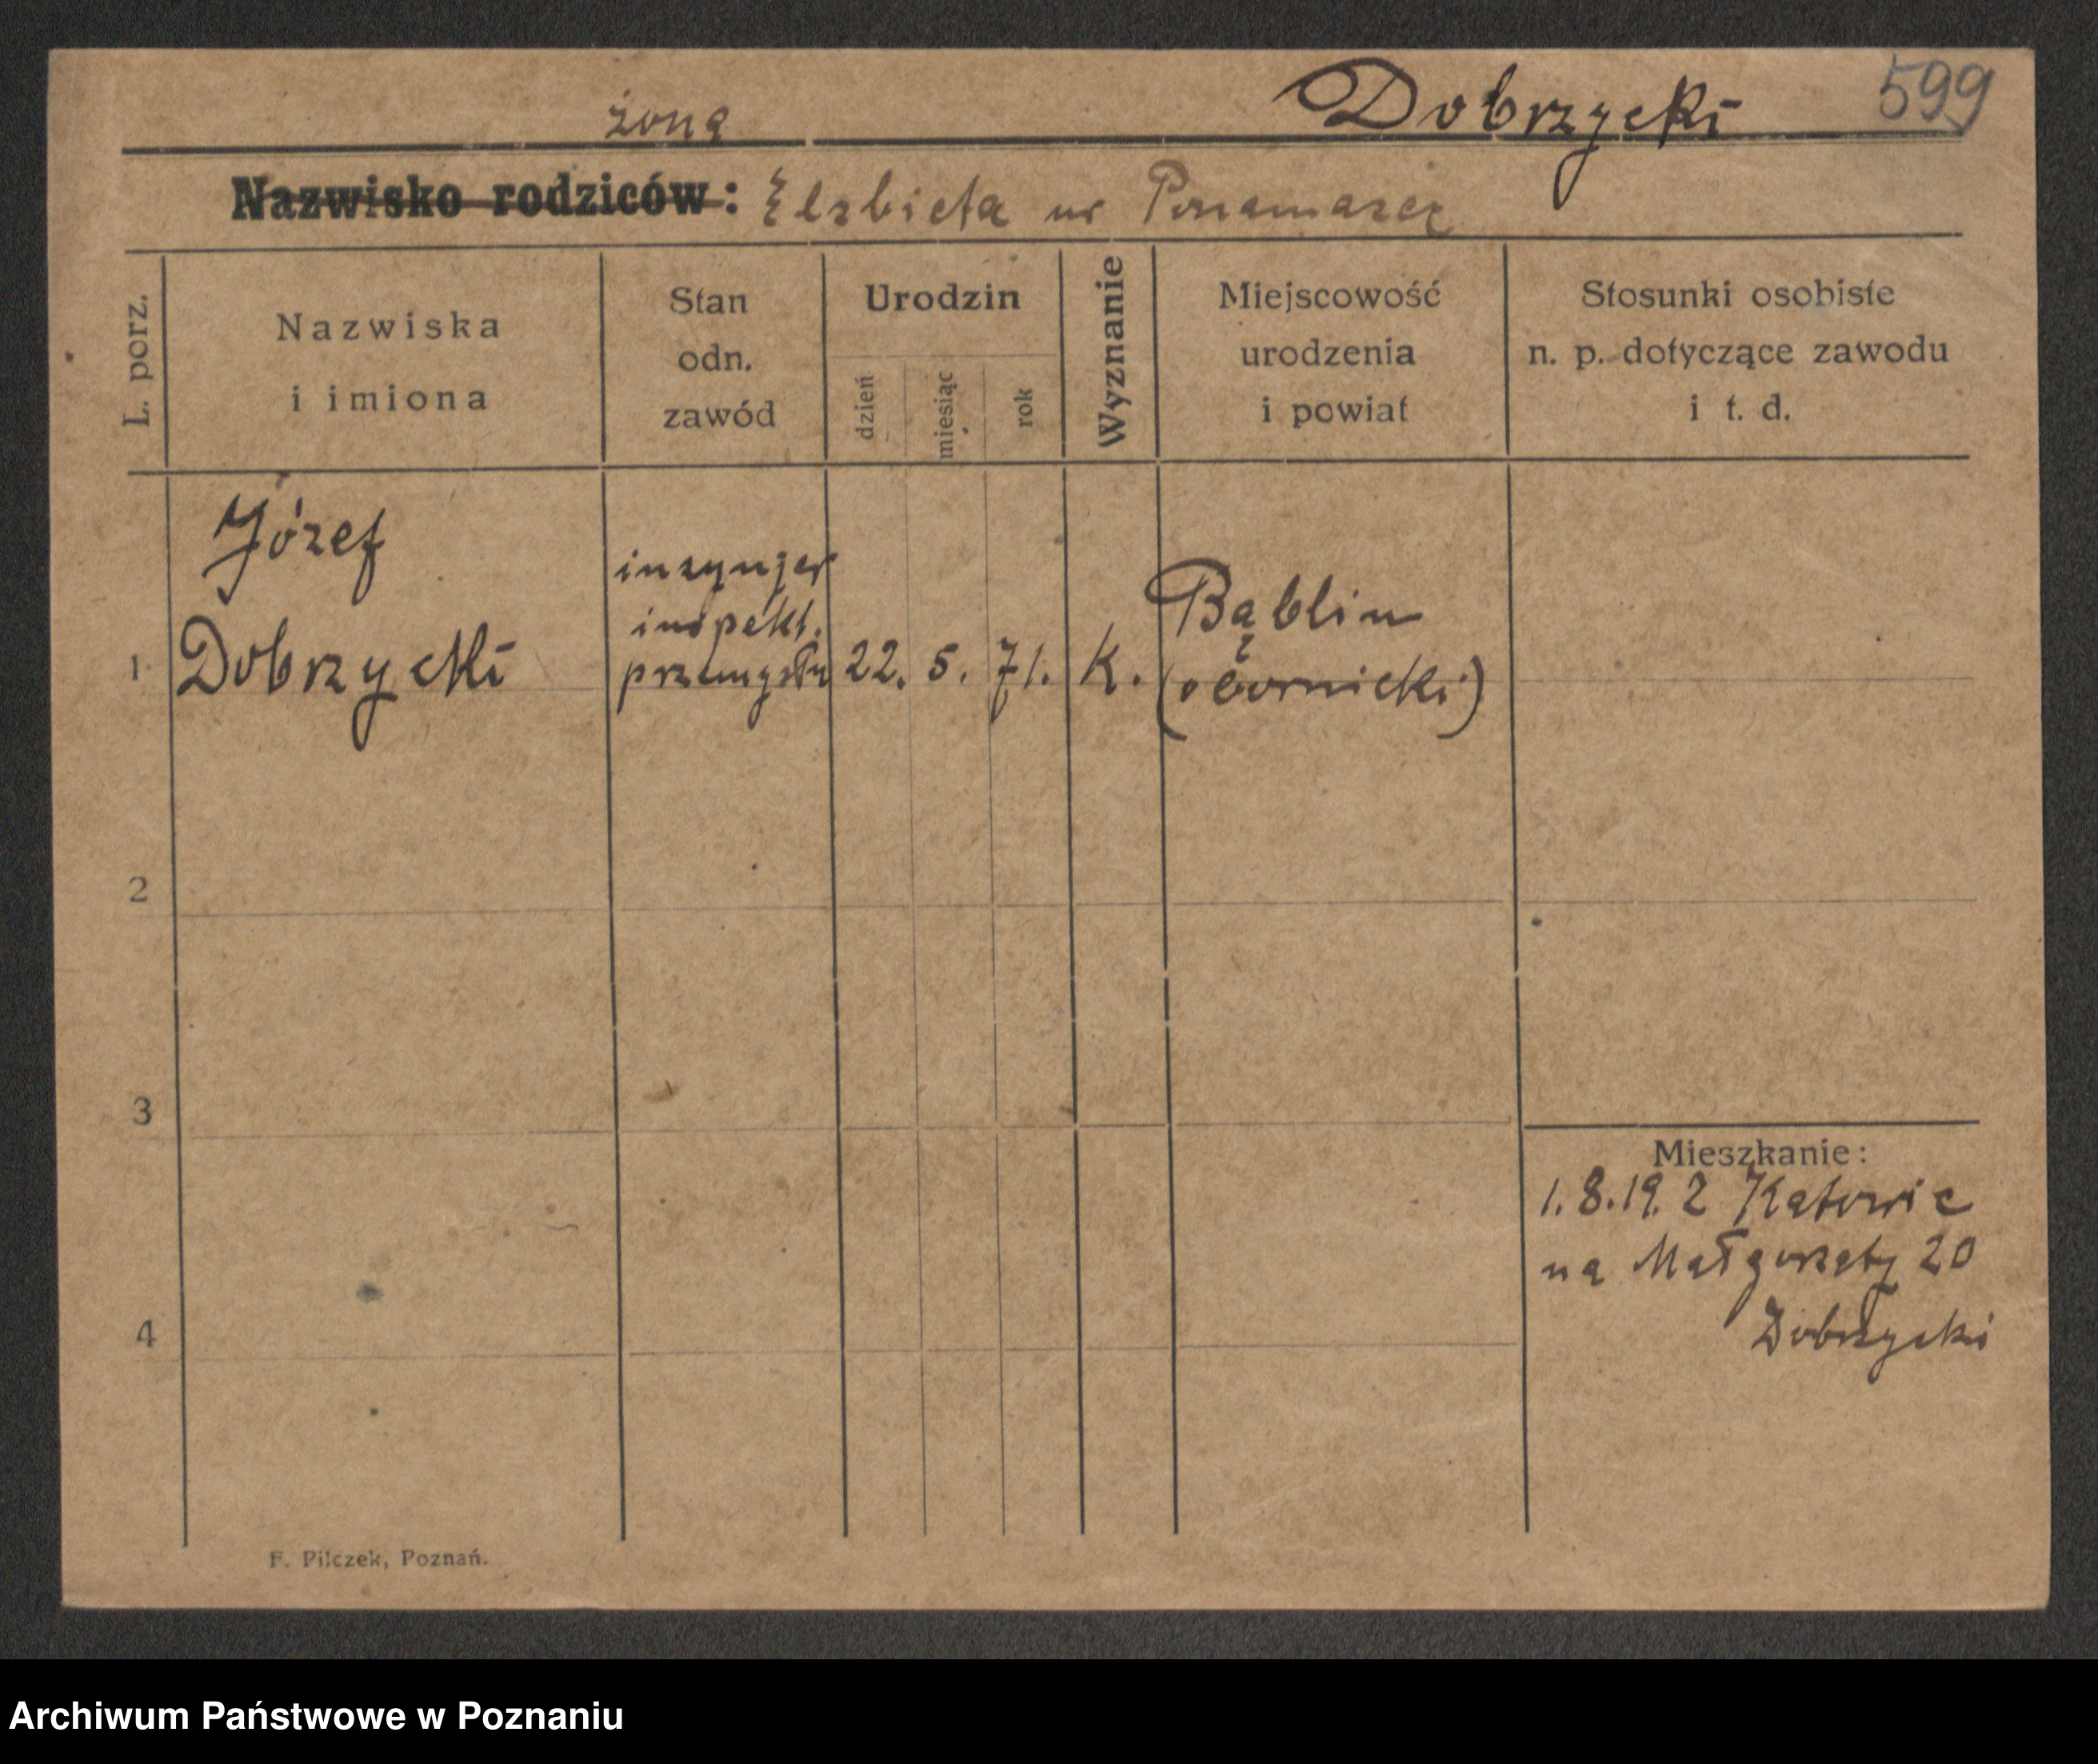 Dobrzycki 599
żona
Nazwisko rodziców: Elzbieta ur
L. porz.
Nazwiska
i imiona
Stan
odn.
zawód
Urodzin
dzień
miesiąc
rok
Wyznanie
Miejscowość
urodzenia
i powiat
Stosunki osobiste
n. p. dotyczące zawodu
i t. d.
Józef
inzynjer
inspekt. Bąblin
1 Dobrzycki przemysłu 22. 5. 71. K. (obornicki)
2
3
Mieszkanie:
1.8.19.2
na Małgorzaty 20
4 Dobrzycki
F. Pilczek, Poznań.
Archiwum Państwowe w Poznaniu